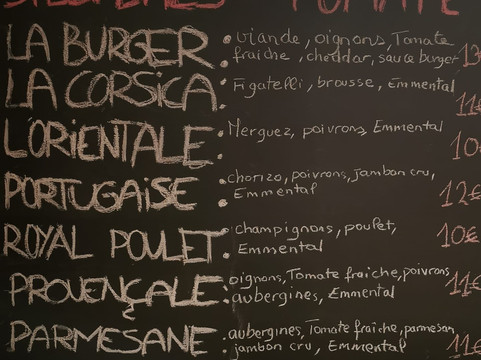 LA BURGER : viande, oignons, Tomate
fraiche, cheddar, sauce burger
LA CORSICA : Figatelli, brousse, Emmental 11€
L'ORIENTALE : Merguez, poivrons, Emmental 10
PORTUGAiSE : chorizo, poivrons, jambon cru,
Emmental 12€
ROYAL POULET : champignons, poulet,
Emmental 10€
PROVENÇALE : oignons, Tomate fraiche, poivrons
aubergines, Emmental 11€
PARMESANE : aubergines, Tomate fraiche, parmesan,
jambon cru, Emmental 11€